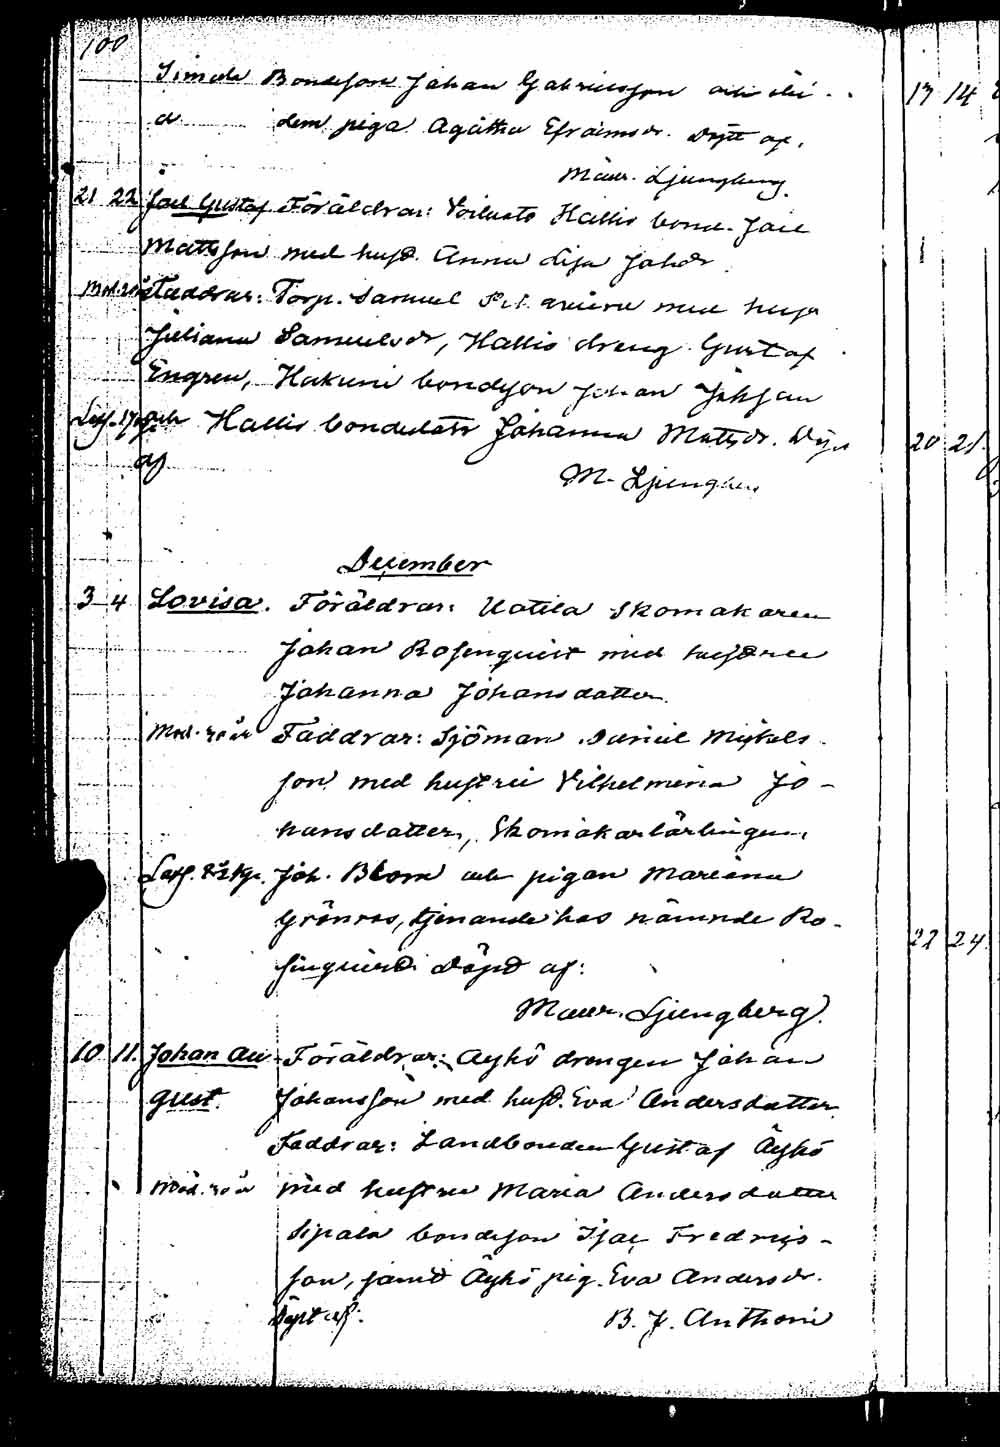 100
Bondeson Johan Gabrielsson och
dem piga Agatha Efraimsdr. Döpt af.
Maur. Ljungberg.
21 22 Joel Gustaf Föräldrar: Hallis bond. Joel
Mattsson med hust. Anna Lisa Johdr
Mod. Faddrar: Torp. Samuel med
Juliana Samuelsdr, Hallis dreng Gustaf
Engren, Hakuni bondeson Johan Johsson
och Hallis bondedottr Johanna Mattsdr. Döp.
af
M. Ljungberg
December
3 4 Lovisa. Föräldrar: Uotila Skomakaren
Johan Rosenqvist med hustru
Johanna Johansdatter.
Mod. 30 år Faddrar: Sjöman Daniel Mickels
son med hustru Vilhelmina Jo-
hansdatter, Skomakarlärlingen
Joh. Blom och pigan Mariana
Grönroos, tjenande hos nämnde Ro-
senqvist. Döpt af:
Maur. Ljungberg.
10 11. Johan Au- Föräldrar: Äyhö drengen Johan
gust. Johansson med hust. Eva Andersdatter
Faddrar: Landbonden Gustaf Äyhö
Mod. 30 år med hustru Maria Andersdatter
Sipala bondeson Isac Fredrics-
son, samt Äyhö pig. Eva Andersdr.
Döpt af: B. J. Anthoni
13 14
20 21.
22 24.